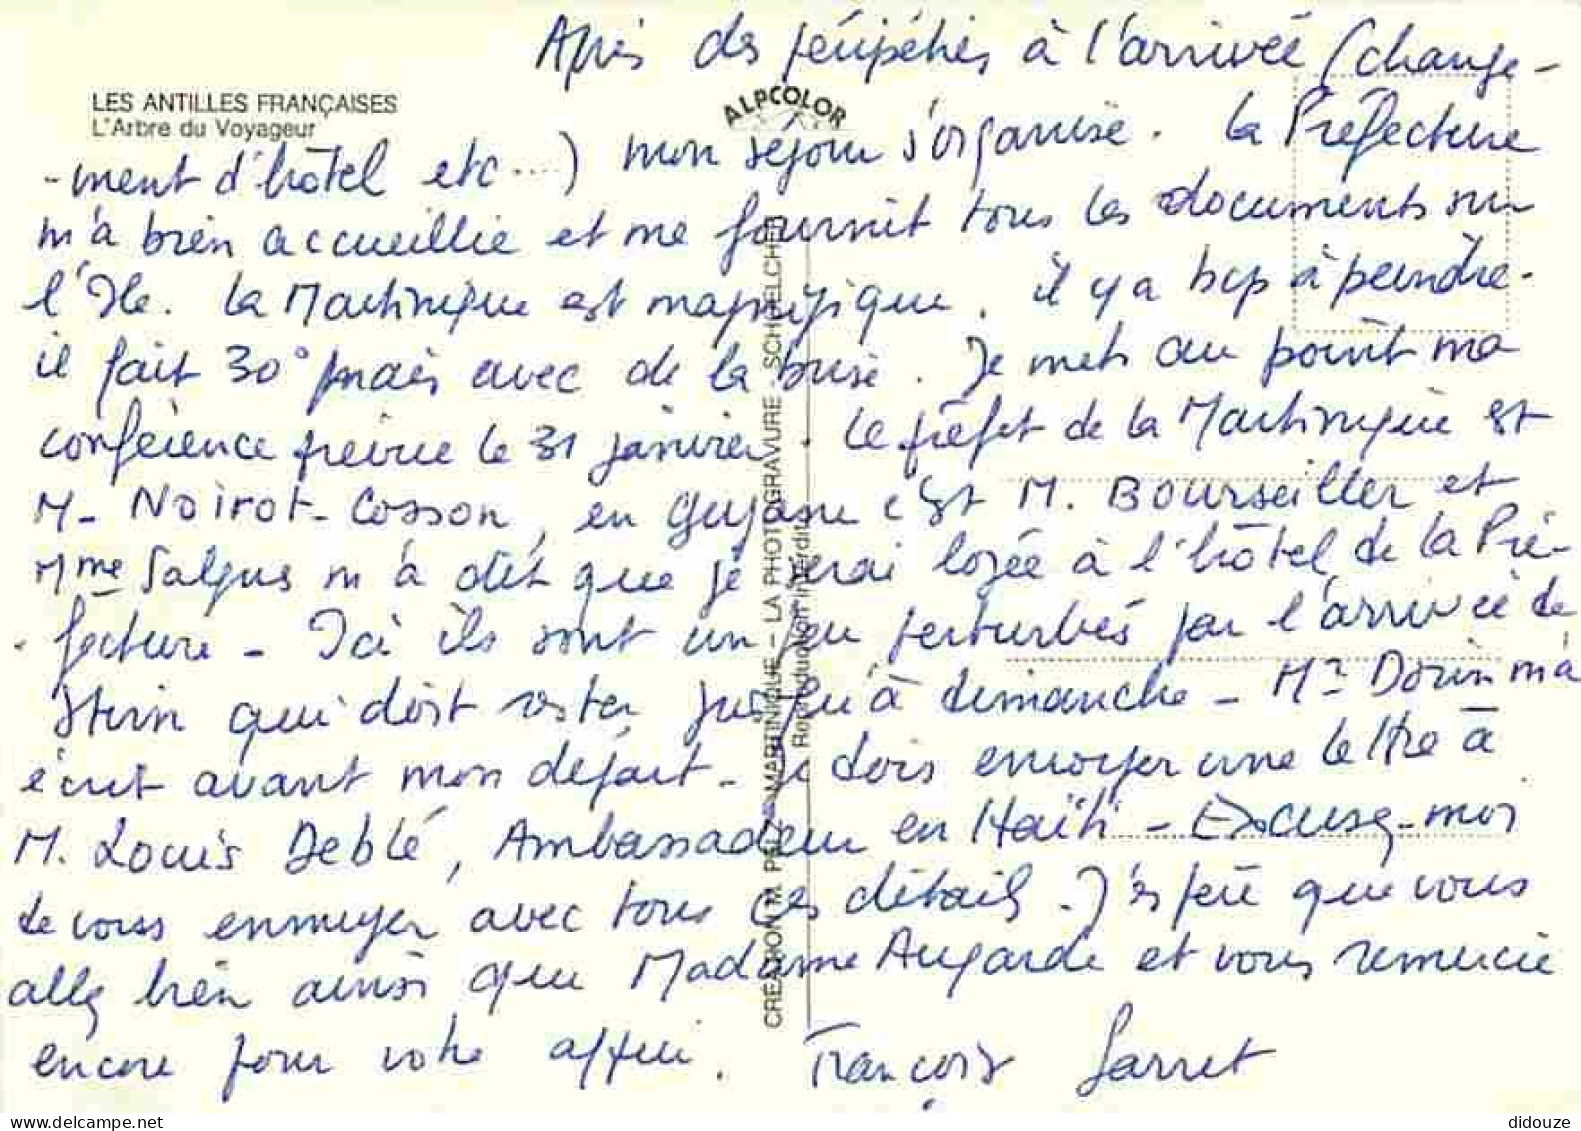 Après des péripéties à l'arrivée (change-
LES ANTILLES FRANÇAISES
L'Arbre du Voyageur
ALPCOLOR
-ment d'hôtel etc...) mon séjour s'organise. La Préfecture
m'a bien accueillie et me fournit tous les documents sur
l'Ile. La Martinique est magnifique. il y a bcp à peindre.
il fait 30° mais avec de la brise. Je mets au point ma
conférence prévue le 31 janvier. Le préfet de la Martinique est
M- Noirot-Cosson, en Guyane c'est M. Bourseiller et
Mme Salgus m'a dit que je serai logée à l'hôtel de la Pré-
fecture - Ici ils sont un peu perturbés par l'arrivée de
Stirn qui doit rester jusqu'à dimanche - Mr Dorin m'a
écrit avant mon départ - Je dois envoyer une lettre à
M. Louis Deblé, Ambassadeur en Haïti - Excusez-moi
de vous ennuyer avec tous ces détails. J'espère que vous
allez bien ainsi que Madame Augarde et vous remercie
encore pour votre appui. François Garret
CREATION M. PELZ - MARTINIQUE - LA PHOTOGRAVURE - SCHOELCHER
Reproduction interdite
didouze